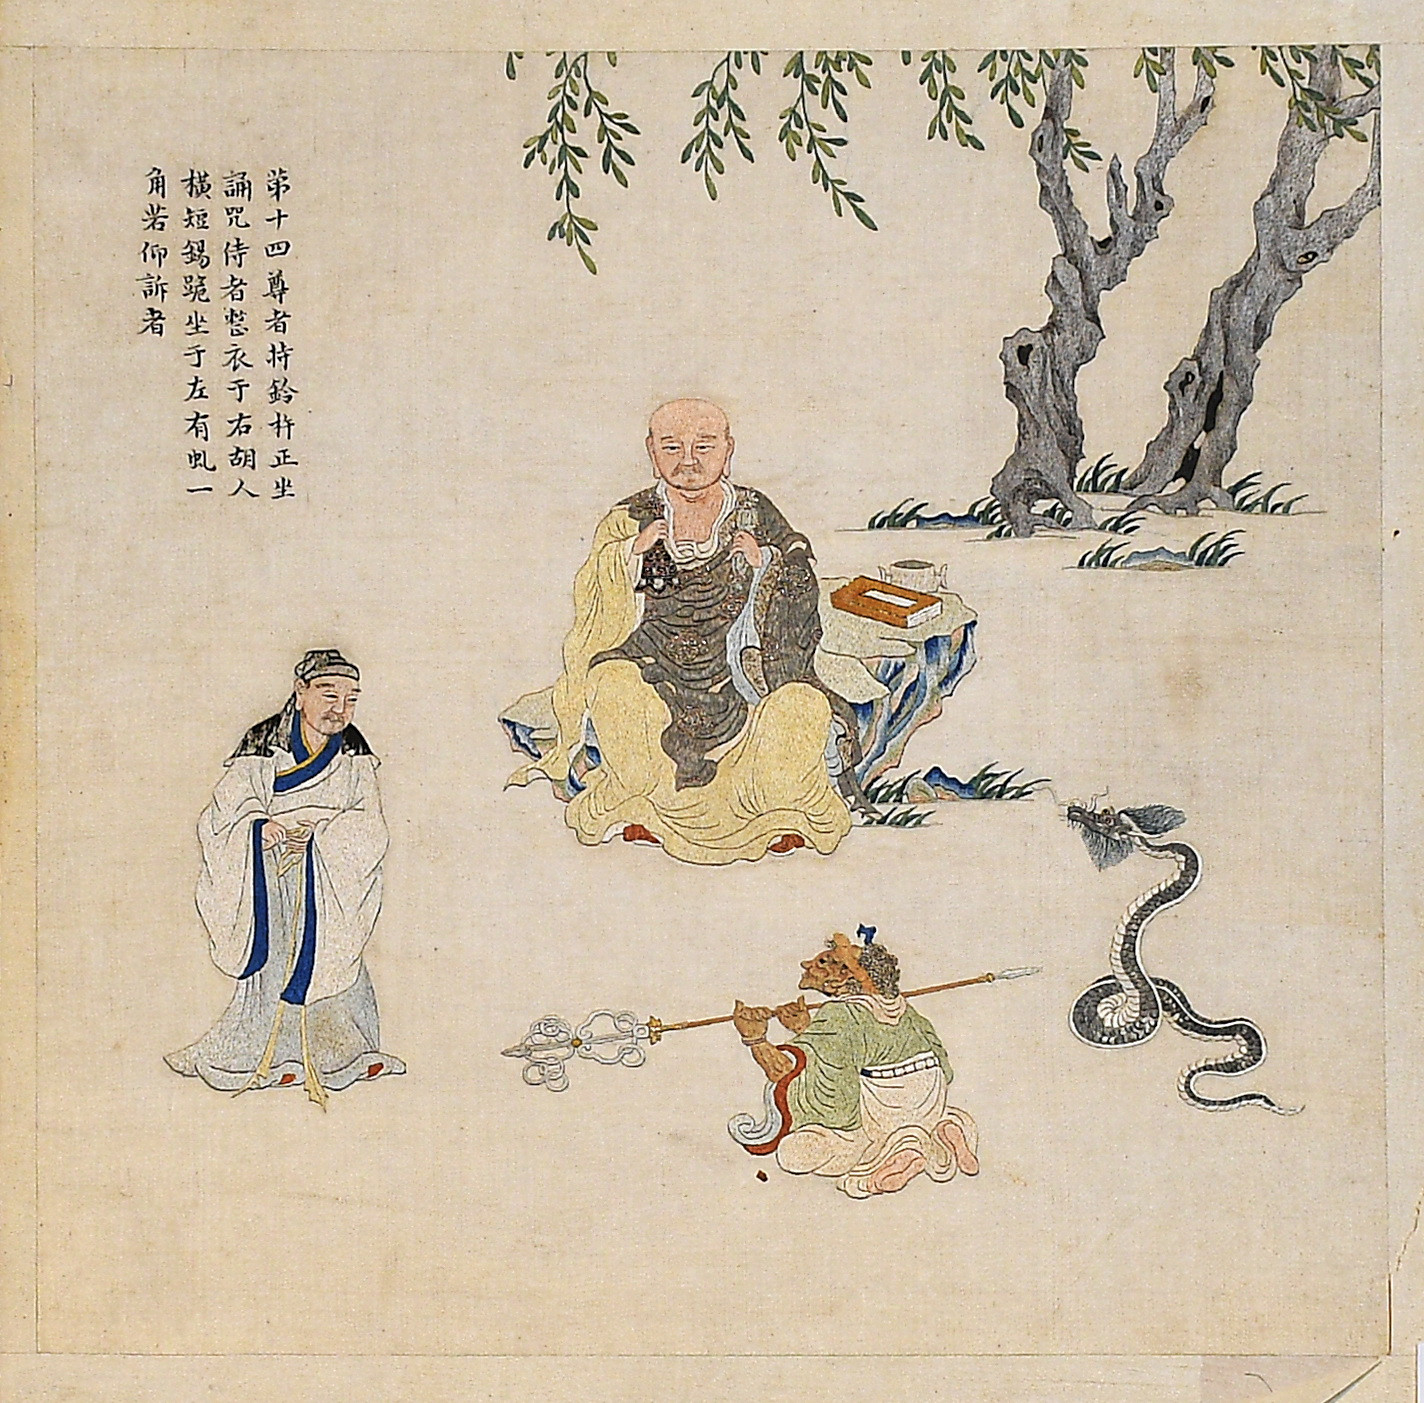 第十四尊者持鈴杵正坐
誦咒侍者整衣于右胡人
橫短錫跪坐于左有虬一
角若仰訴者